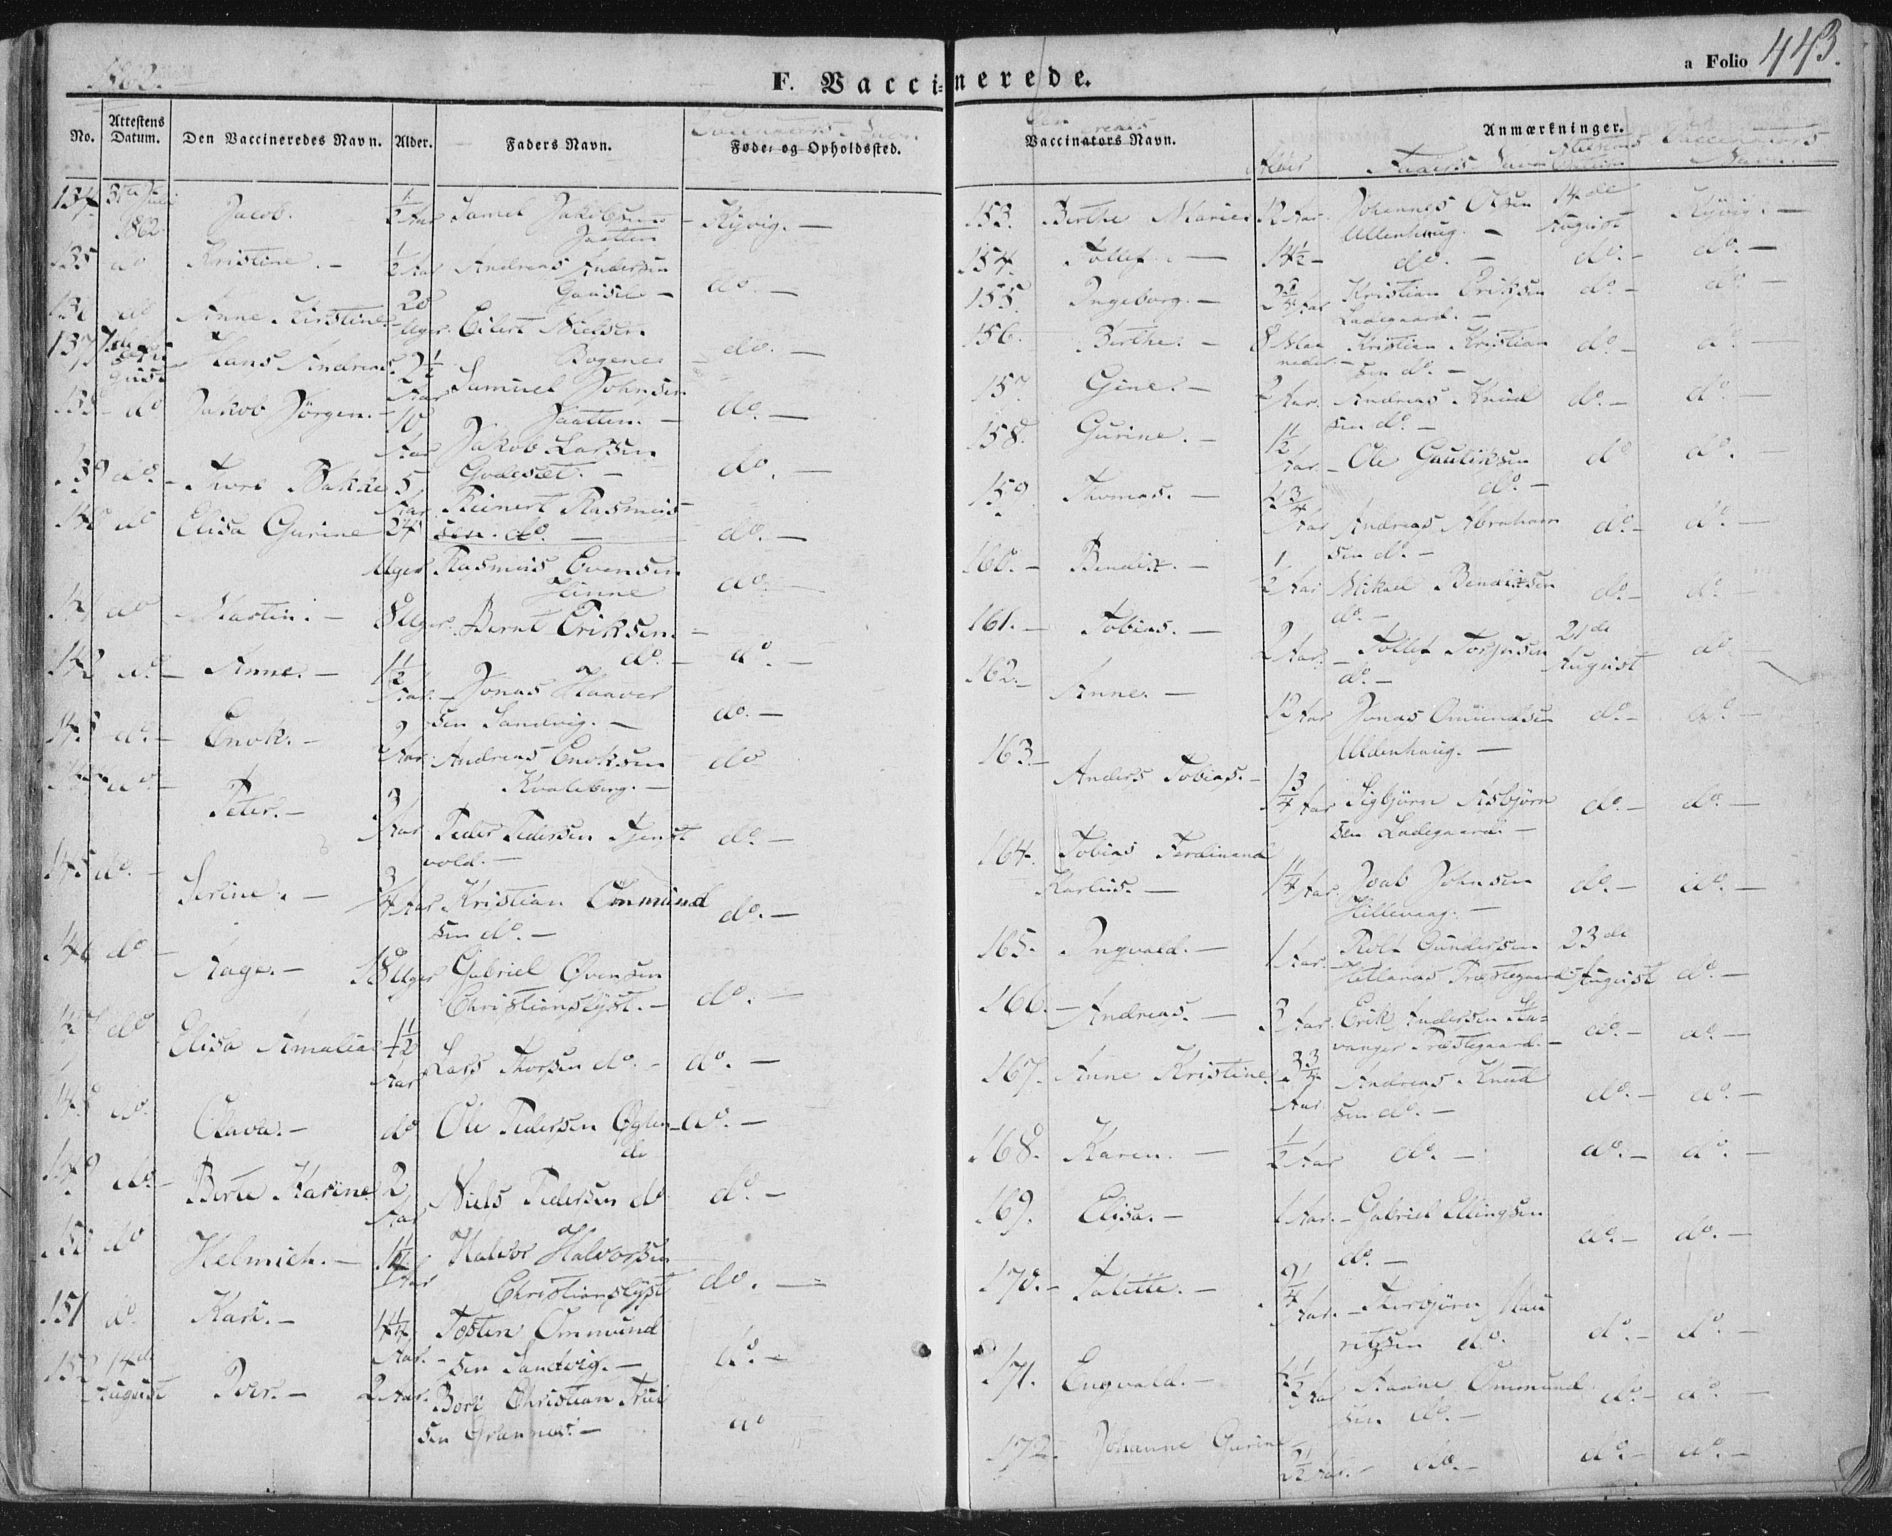 1862.
F. Vaccinerede.
a Folio 443.
No. Attestens Datum. Den Vaccineredes Navn. Alder. Faders Navn. Føde- og Opholdssted.
Vaccinators Navn. Anmærkninger.
Alder Faders Navn Attestens Datum Vaccinators Navn
134. Juli 1862 Jacob. ½ Aar Samel Jakobsen Jaatten Kyvig. —
135 do Kristine. — ½ Aar Andreas Andersen Gausel — do. —
136 do Anne Kirstine 20 Uger Eilert Nielsen Bogenes do. —
137 Hans Andreas. 2½ Aar Samuel Johnsen Jaatten. — do. —
138 — do Jakob Jörgen. — 10 Aar Jakob Larsen Godeset. — do. —
139 do. — Thore Bakke 5 Aar Reinert Rasmussen do. — do. —
140 do Elisa Gurine 24 Uger Rasmus Evensen Hinne do —
141 do Martin. — 8 Uger Bernt Eriksen do. — do. —
142 do — Anne. — 1½ Aar — Jonas Haaversen Sandvig. — do. —
143 do. — Enok. — 2 Aar Andreas Enoksen Kvaleberg. — do
144 do — Peter. — 3 Aar Peder Pedersen Tjenstvold. — do. —
145 do. — Serine. — ¾ Aar Kristian Ommundsen do. — do. —
146 do — Aage. — 18 Uger Gabriel Evensen Christianslyst. — do. —
147 do Elisa Amalia 1½ Aar Lars Thorsen do. — do. —
148 do. Olava. — do Ole Pedersen do. —
149 do. — Berte Karine 2 Aar Niels Pedersen do do. —
150 do Helmich. — 1¼ Aar Halvor Halvorsen Christianslyst do. —
151 do. Kari. — 4¼ Aar. Tosten Ommundsen Sandvig. — do. —
152 14de August Iver. — 2 Aar. Christian do
153. Berthe Marie 12 Aar. Johannes Olsen Ullenhaug. — 14de August Kyvig. —
154. Tollef. — 14½ — do. — do. — do. —
155. Ingeborg. — Aar Kristian Eriksen Ladegaard. — do. — do —
156. Berthe. — 8 Maaneder. Kristian Kristiansen do. — do. — do —
157. Gine. — 2 Aar. Andreas Knudsen do. — do. — do. —
158. Gurine. — 1½ Aar — Ole Gauteksen do. — do do. —
159. Thomas. — 4¾ Aar Andreas Abrahamsen do. — do. — do. —
160. — Bendix. — ½ Aar Mikael Bendixsen do. — do. — do. —
161. — Tobias. — 2 Aar. — Tollef Torjusen do. — 21de August do. —
162. — Anne. — 12 Aar Jonas Omundsen Ullenhaug. — do. — do. —
163. — Anders Tobias. — 1¾ Aar Sigbjörn Asbjörnsen Ladegaard. — do. — do. —
164. Tobias Ferdinand Karlus. — 1¼ Aar. Joab Johnsen Hillevaag. — do. — do. —
165. Ingvald. — 1 Aar. Rolf Gundersen Hetlands Præstegaard 23de August do. —
166. — Andreas. — 3 Aar. Erik Andersen Stavanger Præstegaard. — do. — do. —
167. Anne Kristine. 3¾ Aar Andreas Knudsen do. — do. — do. —
168. Karen. — ½ Aar do. — do. — do. —
169. Elisa. — 1 Aar. — Gabriel Ellingsen do. — do. — do. —
170. — Talette. — ¼ Aar. — Torbjörn Mauritzsen do. do. — do. —
171. Engvald. — ½ Aar Aadne Ommundsen do. — do. — do. —
172. Johanne Gurine 2½ Aar. — do. — do. — do. —